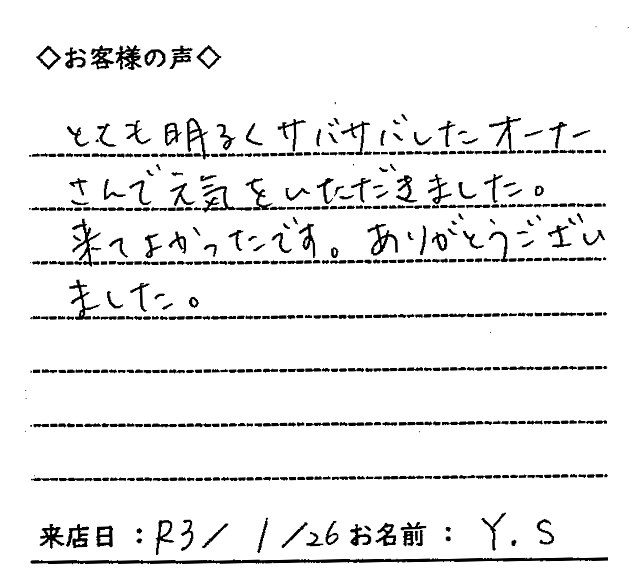 ◇お客様の声◇
とても明るくサバサバしたオーナー
さんで元気をいただきました。
来てよかったです。ありがとうござい
ました。
来店日：R3/1/26 お名前：Y.S